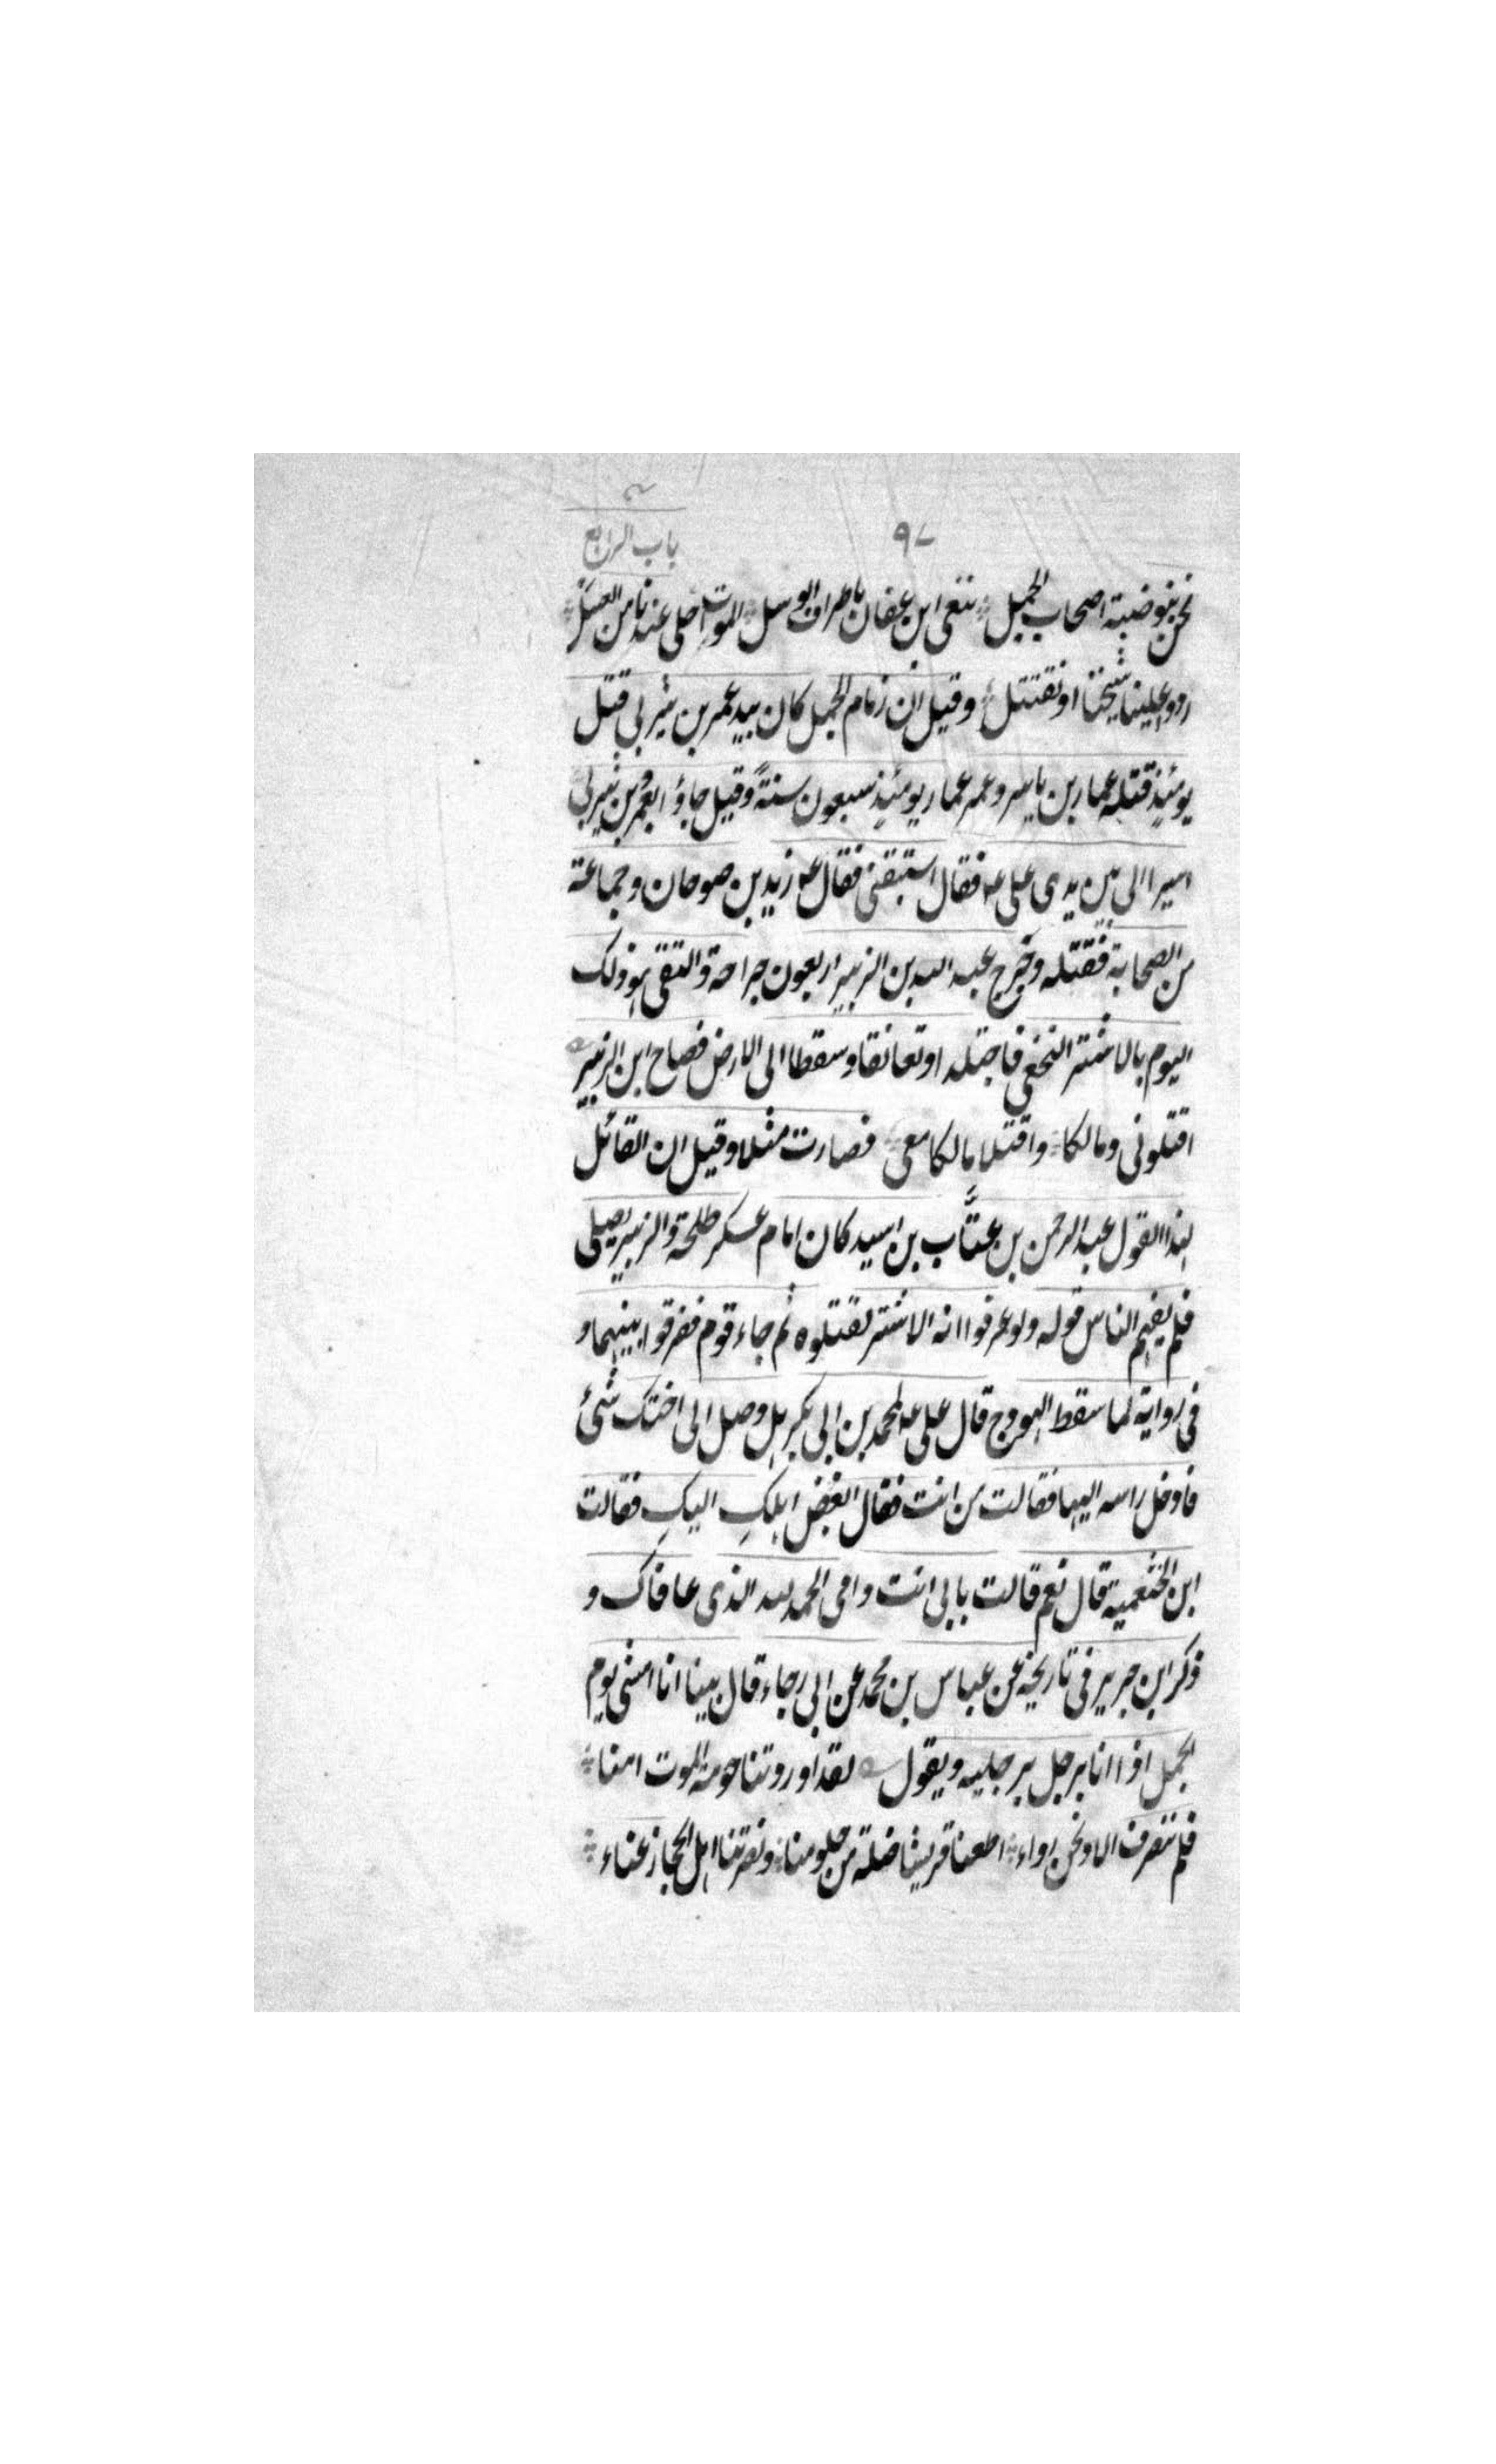 ٩٧
باب الرابع
نحن بنو ضبة اصحاب الجمل ننعى ابن عفان باطراف الوسل الموت احلى عندنا من العسل
ردوا علينا شيخنا او نقتتل وقيل ان زمام الجمل كان بيد عمر بن يثربى قتل
يومئذ قتله عمار بن ياسر وعمر عمار يومئذ سبعون سنة وقيل جاؤا بعمر بن يثربى
اسيرا الى بين يدى على عه فقال استبقنى فقال عه زيد بن صوحان وجماعة
من الصحابة فقتله وخرج عبد الله بن الزبير اربعون جراحة والتقى هو ذلك
اليوم بالاشتر النخعى فاجتلدا وتعانقا وسقطا الى الارض فصاح ابن الزبير
اقتلونى ومالكا واقتلا مالكا معى فصارت مثلا وقيل ان القائل
لهذا القول عبد الرحمن بن عتّاب بن اسيد كان امام عسكر طلحة والزبير يصلى
فلم يفهم الناس قوله ولو عرفوا انه الاشتر لقتلوه ثم جاء قوم ففرقوا بينهما و
فى رواية لما سقط الهودج قال على عه لمحمد بن ابى بكر هل وصل الى اختك شئ
فادخل راسه اليها فقالت من انت فقال ابغض اهلكِ اليكِ فقالت
ابن الخثعمية قال نعم قالت بابى انت وامى الحمد لله الذى عافاك و
ذكر ابن جرير فى تاريخه عن عباس بن محمد عن ابى رجاء قال بينا انا امشى يوم
الجمل اذا انا برجل برجليه ويقول لقد اوردتنا حومة الموت امنا
فلم تنصرف الا ونحن رواء اطعنا قريشا ضلة من حلومنا ونصرتنا اهل الحجاز عناء